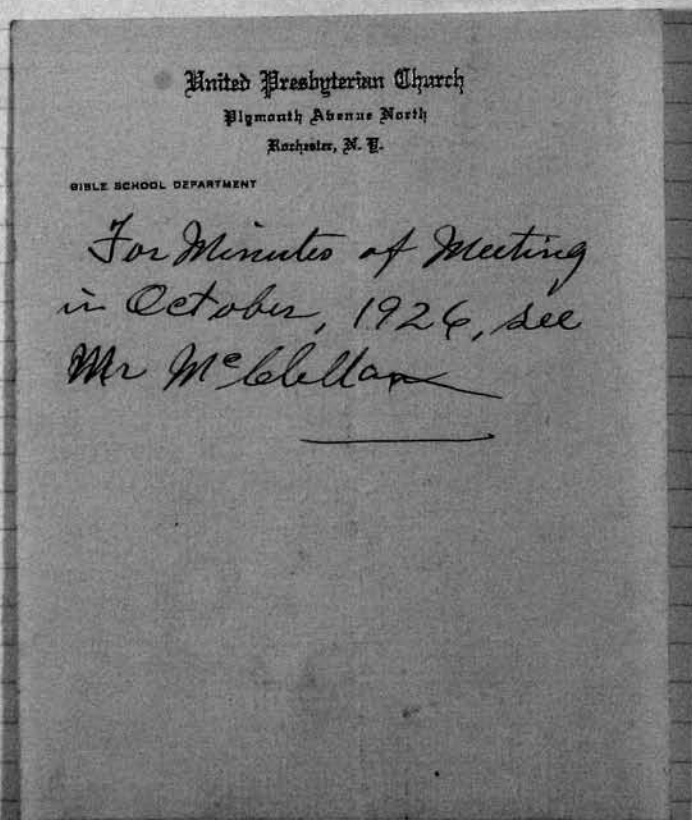 United Presbyterian Church
Plymouth Avenue North
Rochester, N. Y.
BIBLE SCHOOL DEPARTMENT
For Minutes of Meeting
in October, 1926, see
Mr McClellan